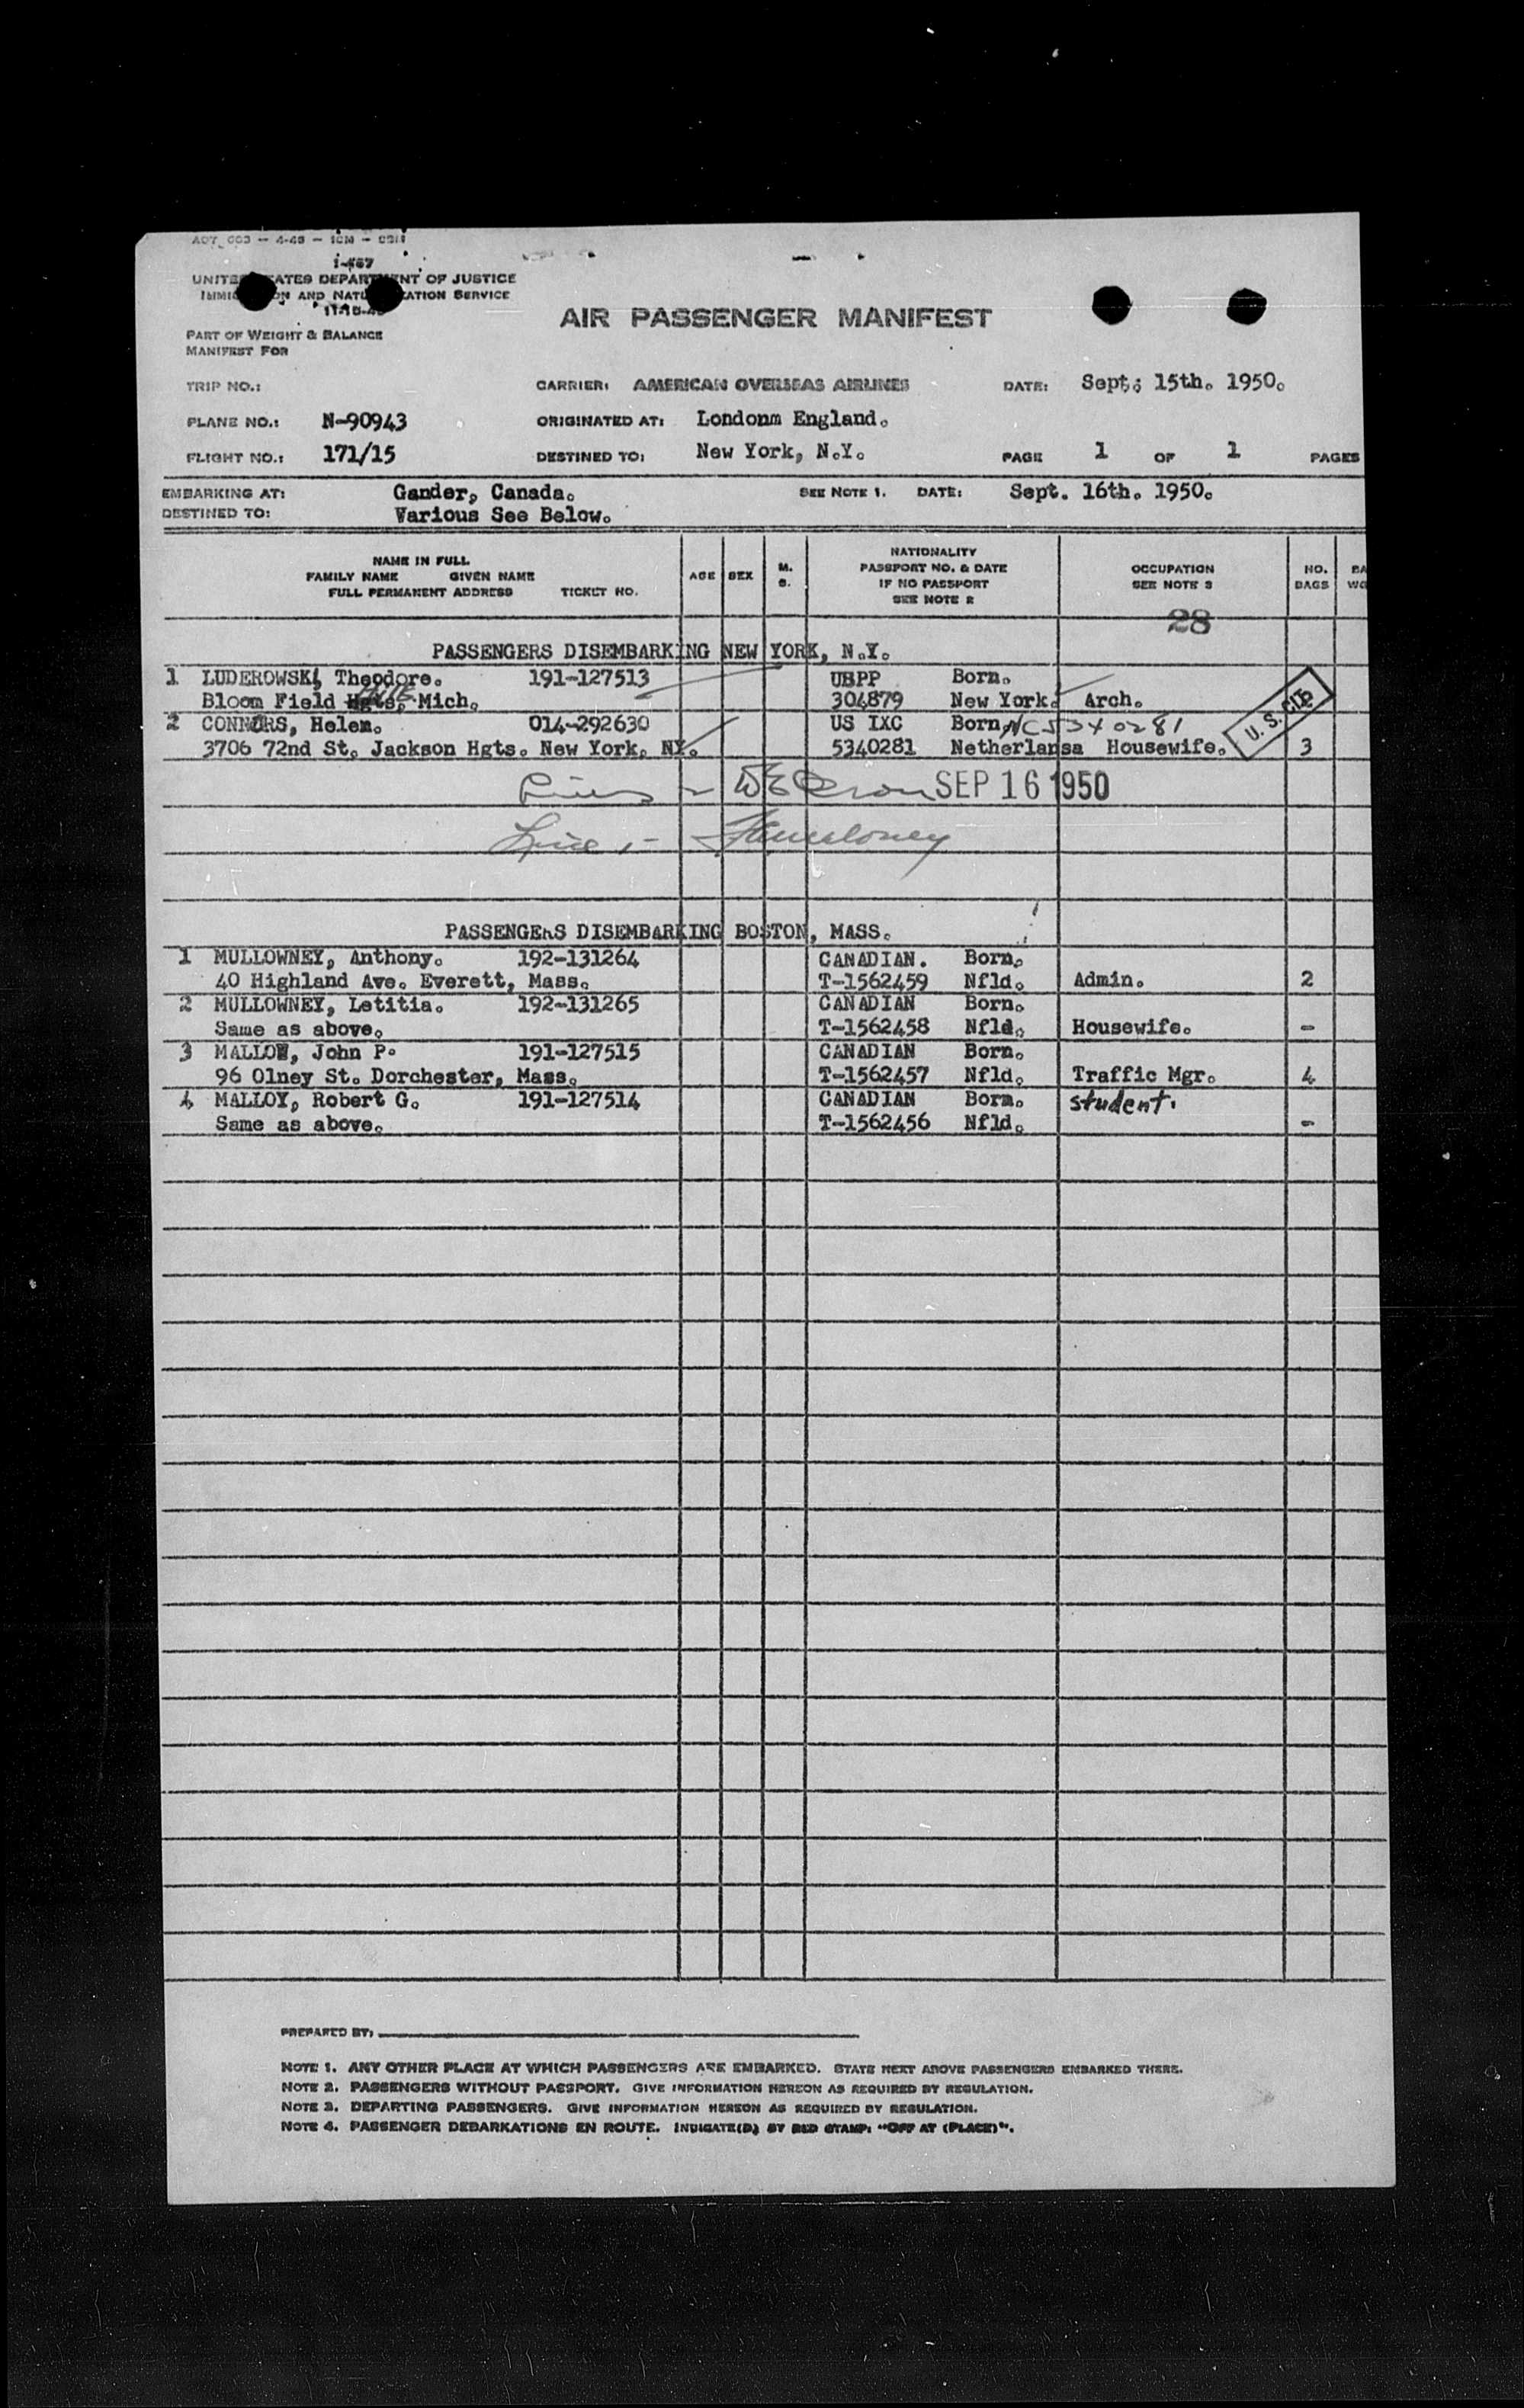 I-467
UNITED STATES DEPARTMENT OF JUSTICE
IMMIGRATION AND NATURALIZATION SERVICE
PART OF WEIGHT & BALANCE
MANIFEST FOR
AIR PASSENGER MANIFEST
TRIP NO.: CARRIER: AMERICAN OVERSEAS AIRLINES DATE: Sept; 15th. 1950.
PLANE NO.: N-90943 ORIGINATED AT: Londonm England.
FLIGHT NO.: 171/15 DESTINED TO: New York, N.Y. PAGE 1 OF 1 PAGES
EMBARKING AT: Gander, Canada. SEE NOTE 1. DATE: Sept. 16th. 1950.
DESTINED TO: Various See Below.
NAME IN FULL
FAMILY NAME GIVEN NAME
FULL PERMANENT ADDRESS TICKET NO.
AGE SEX M. S.
NATIONALITY
PASSPORT NO. & DATE
IF NO PASSPORT
SEE NOTE 2
OCCUPATION
SEE NOTE 3
NO. BAGS
BA
WG
28
PASSENGERS DISEMBARKING NEW YORK, N.Y.
1 LUDEROWSKI, Theodore. 191-127513 USPP Born.
Bloom Field Hgts. Mich. 304879 New York. Arch.
2 CONNORS, Helen. 014-292630 US IXC Born. NC5340281
3706 72nd St. Jackson Hgts. New York. NY. 5340281 Netherlansa Housewife. 3
U. S. CIT.
SEP 16 1950
Line 1 -
PASSENGERS DISEMBARKING BOSTON, MASS.
1 MULLOWNEY, Anthony. 192-131264 CANADIAN. Born.
40 Highland Ave. Everett, Mass. T-1562459 Nfld. Admin. 2
2 MULLOWNEY, Letitia. 192-131265 CANADIAN Born.
Same as above. T-1562458 Nfld. Housewife. -
3 MALLOY, John P. 191-127515 CANADIAN Born.
96 Olney St. Dorchester, Mass. T-1562457 Nfld. Traffic Mgr. 4
4 MALLOY, Robert G. 191-127514 CANADIAN Born. student.
Same as above. T-1562456 Nfld. -
PREPARED BY:
NOTE 1. ANY OTHER PLACE AT WHICH PASSENGERS ARE EMBARKED. STATE NEXT ABOVE PASSENGERS EMBARKED THERE.
NOTE 2. PASSENGERS WITHOUT PASSPORT. GIVE INFORMATION HEREON AS REQUIRED BY REGULATION.
NOTE 3. DEPARTING PASSENGERS. GIVE INFORMATION HEREON AS REQUIRED BY REGULATION.
NOTE 4. PASSENGER DEBARKATIONS EN ROUTE. INDICATE(D) BY RED STAMP: "OFF AT (PLACE)".